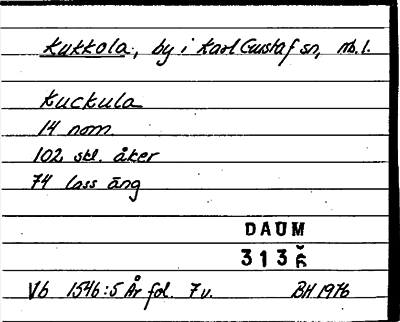 Kukkola, by i Karl Gustaf sn, nb.l.
Kuckula
14 nom.
102 skl. åker
74 lass äng
DAUM
313
Vb 1546:5 År fol. 7v. BH 1976